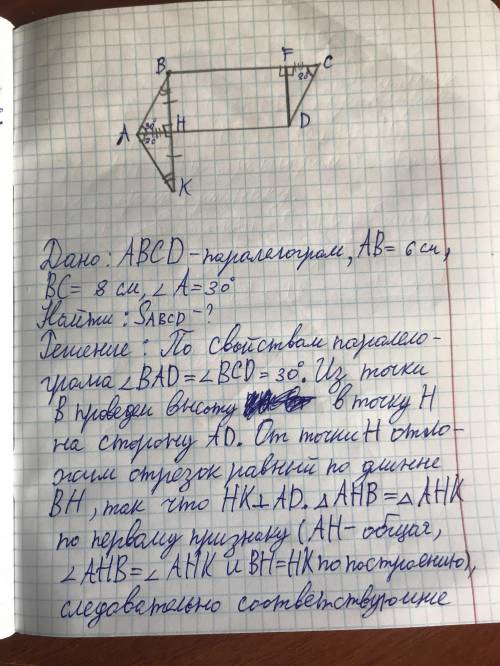 B F C
30°
A 30° H D
30°
K
Дано: ABCD-паралегограм, AB= 6 см,
BC= 8 см, ∠A=30°
Найти: SABCD-?
Решение: По свойствам паралело-
грама ∠BAD=∠BCD=30°. Из точки
B проведем высоту в точку H
на сторону AD. От точки H отло-
жим отрезок равный по длинне
BH, так что HK⊥AD. △AHB=△AHK
по первому признаку (AH-общая,
∠AHB=∠AHK и BH=HK по построению),
следовательно соответствующие